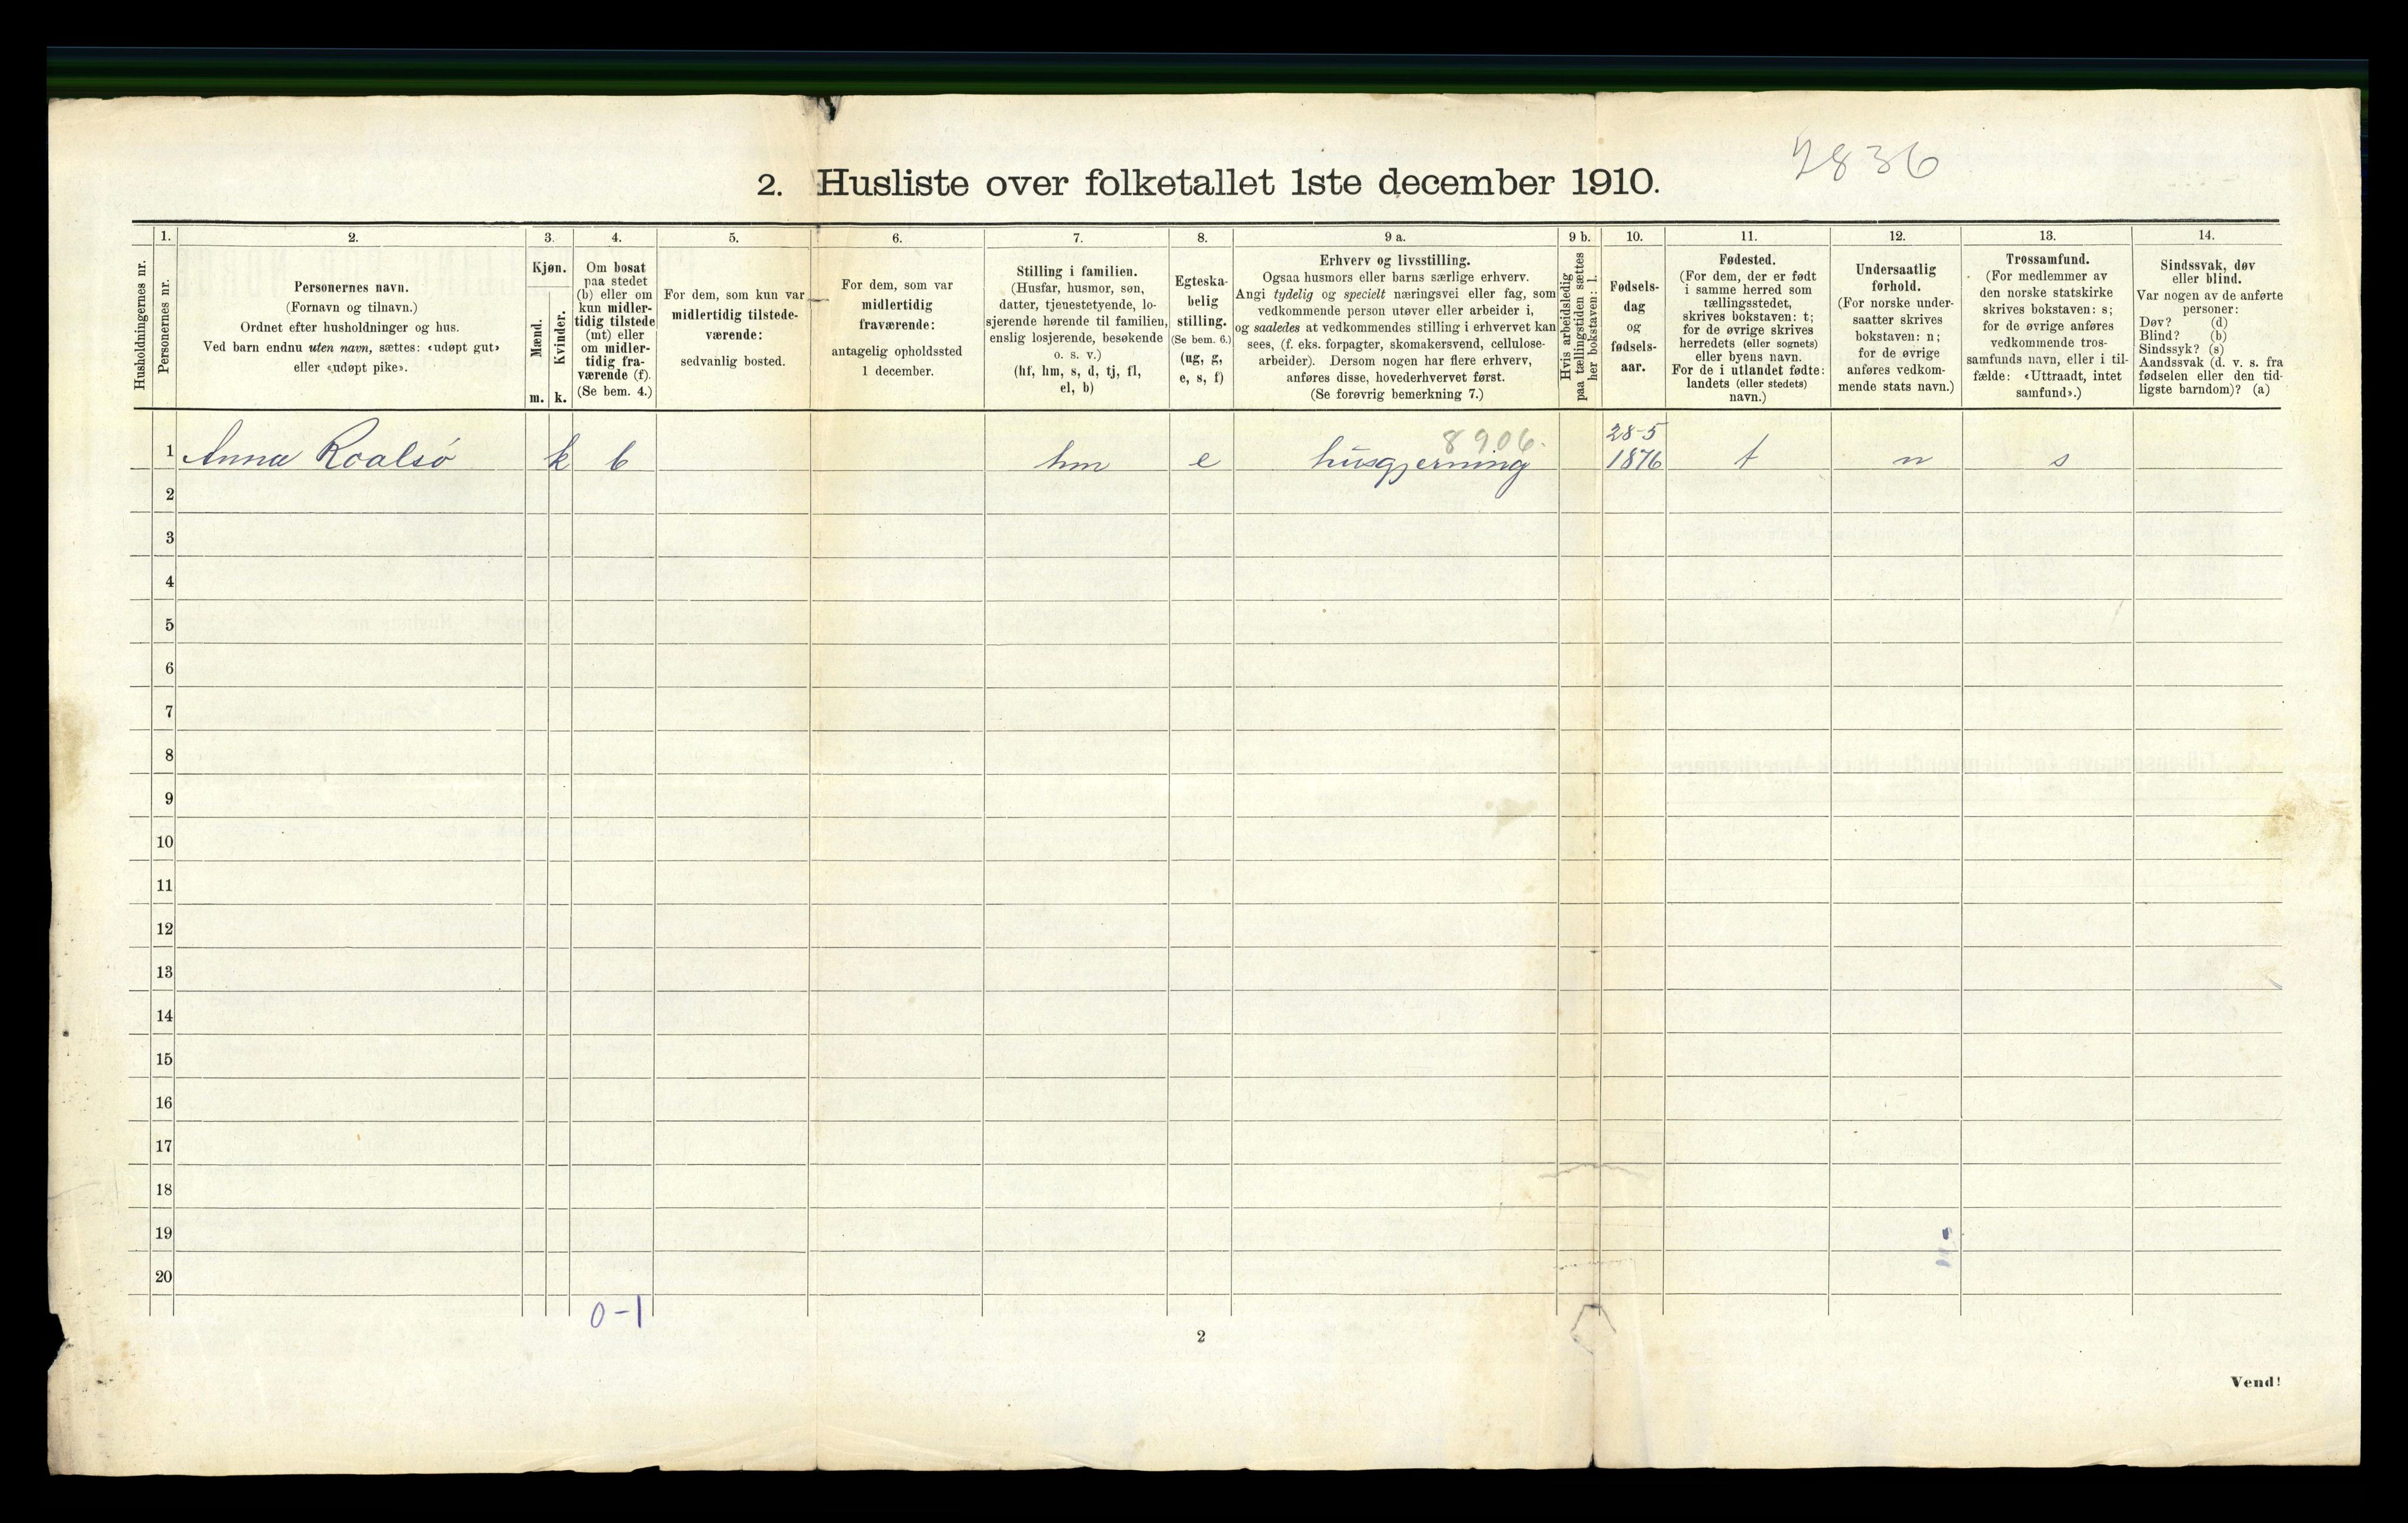 2836
2. Husliste over folketallet 1ste december 1910.
Husholdningernes nr.
1.
Personernes nr.
2.
Personernes navn.
(Fornavn og tilnavn.)
Ordnet efter husholdninger og hus.
Ved barn endnu uten navn, sættes: «udøpt gut»
eller «udøpt pike».
3.
Kjøn.
Mænd.
Kvinder.
m.
k.
4.
Om bosat
paa stedet
(b) eller om
kun midler-
tidig tilstede
(mt) eller
om midler-
tidig fra-
værende (f).
(Se bem. 4.)
5.
For dem, som kun var
midlertidig tilstede-
værende:
sedvanlig bosted.
6.
For dem, som var
midlertidig
fraværende:
antagelig opholdssted
1 december.
7.
Stilling i familien.
(Husfar, husmor, søn,
datter, tjenestetyende, lo-
sjerende hørende til familien,
enslig losjerende, besøkende
o. s. v.)
(hf, hm, s, d, tj, fl,
el, b)
8.
Egteska-
belig
stilling.
(Se bem. 6.)
(ug, g,
e, s, f)
9 a.
Erhverv og livsstilling.
Ogsaa husmors eller barns særlige erhverv.
Angi tydelig og specielt næringsvei eller fag, som
vedkommende person utøver eller arbeider i,
og saaledes at vedkommendes stilling i erhvervet kan
sees, (f. eks. forpagter, skomakersvend, cellulose-
arbeider). Dersom nogen har flere erhverv,
anføres disse, hovederhvervet først.
(Se forøvrig bemerkning 7.)
9 b.
Hvis arbeidsledig
paa tællingstiden sættes
her bokstaven: l.
10.
Fødsels-
dag
og
fødsels-
aar.
11.
Fødested.
(For dem, der er født
i samme herred som
tællingsstedet,
skrives bokstaven: t;
for de øvrige skrives
herredets (eller sognets)
eller byens navn.
For de i utlandet fødte:
landets (eller stedets)
navn.)
12.
Undersaatlig
forhold.
(For norske under-
saatter skrives
bokstaven: n;
for de øvrige
anføres vedkom-
mende stats navn.)
13.
Trossamfund.
(For medlemmer av
den norske statskirke
skrives bokstaven: s;
for de øvrige anføres
vedkommende tros-
samfunds navn, eller i til-
fælde: «Uttraadt, intet
samfund».)
14.
Sindssvak, døv
eller blind.
Var nogen av de anførte
personer:
Døv? (d)
Blind? (b)
Sindssyk? (s)
Aandssvak (d. v. s. fra
fødselen eller den tid-
ligste barndom)? (a)
8906.
28-5
1 Anna Roalsø k b hm e husgjerning 1876 t n s
2
3
4
5
6
7
8
9
10
11
12
13
14
15
16
17
18
19
20
0-1
2
Vend!